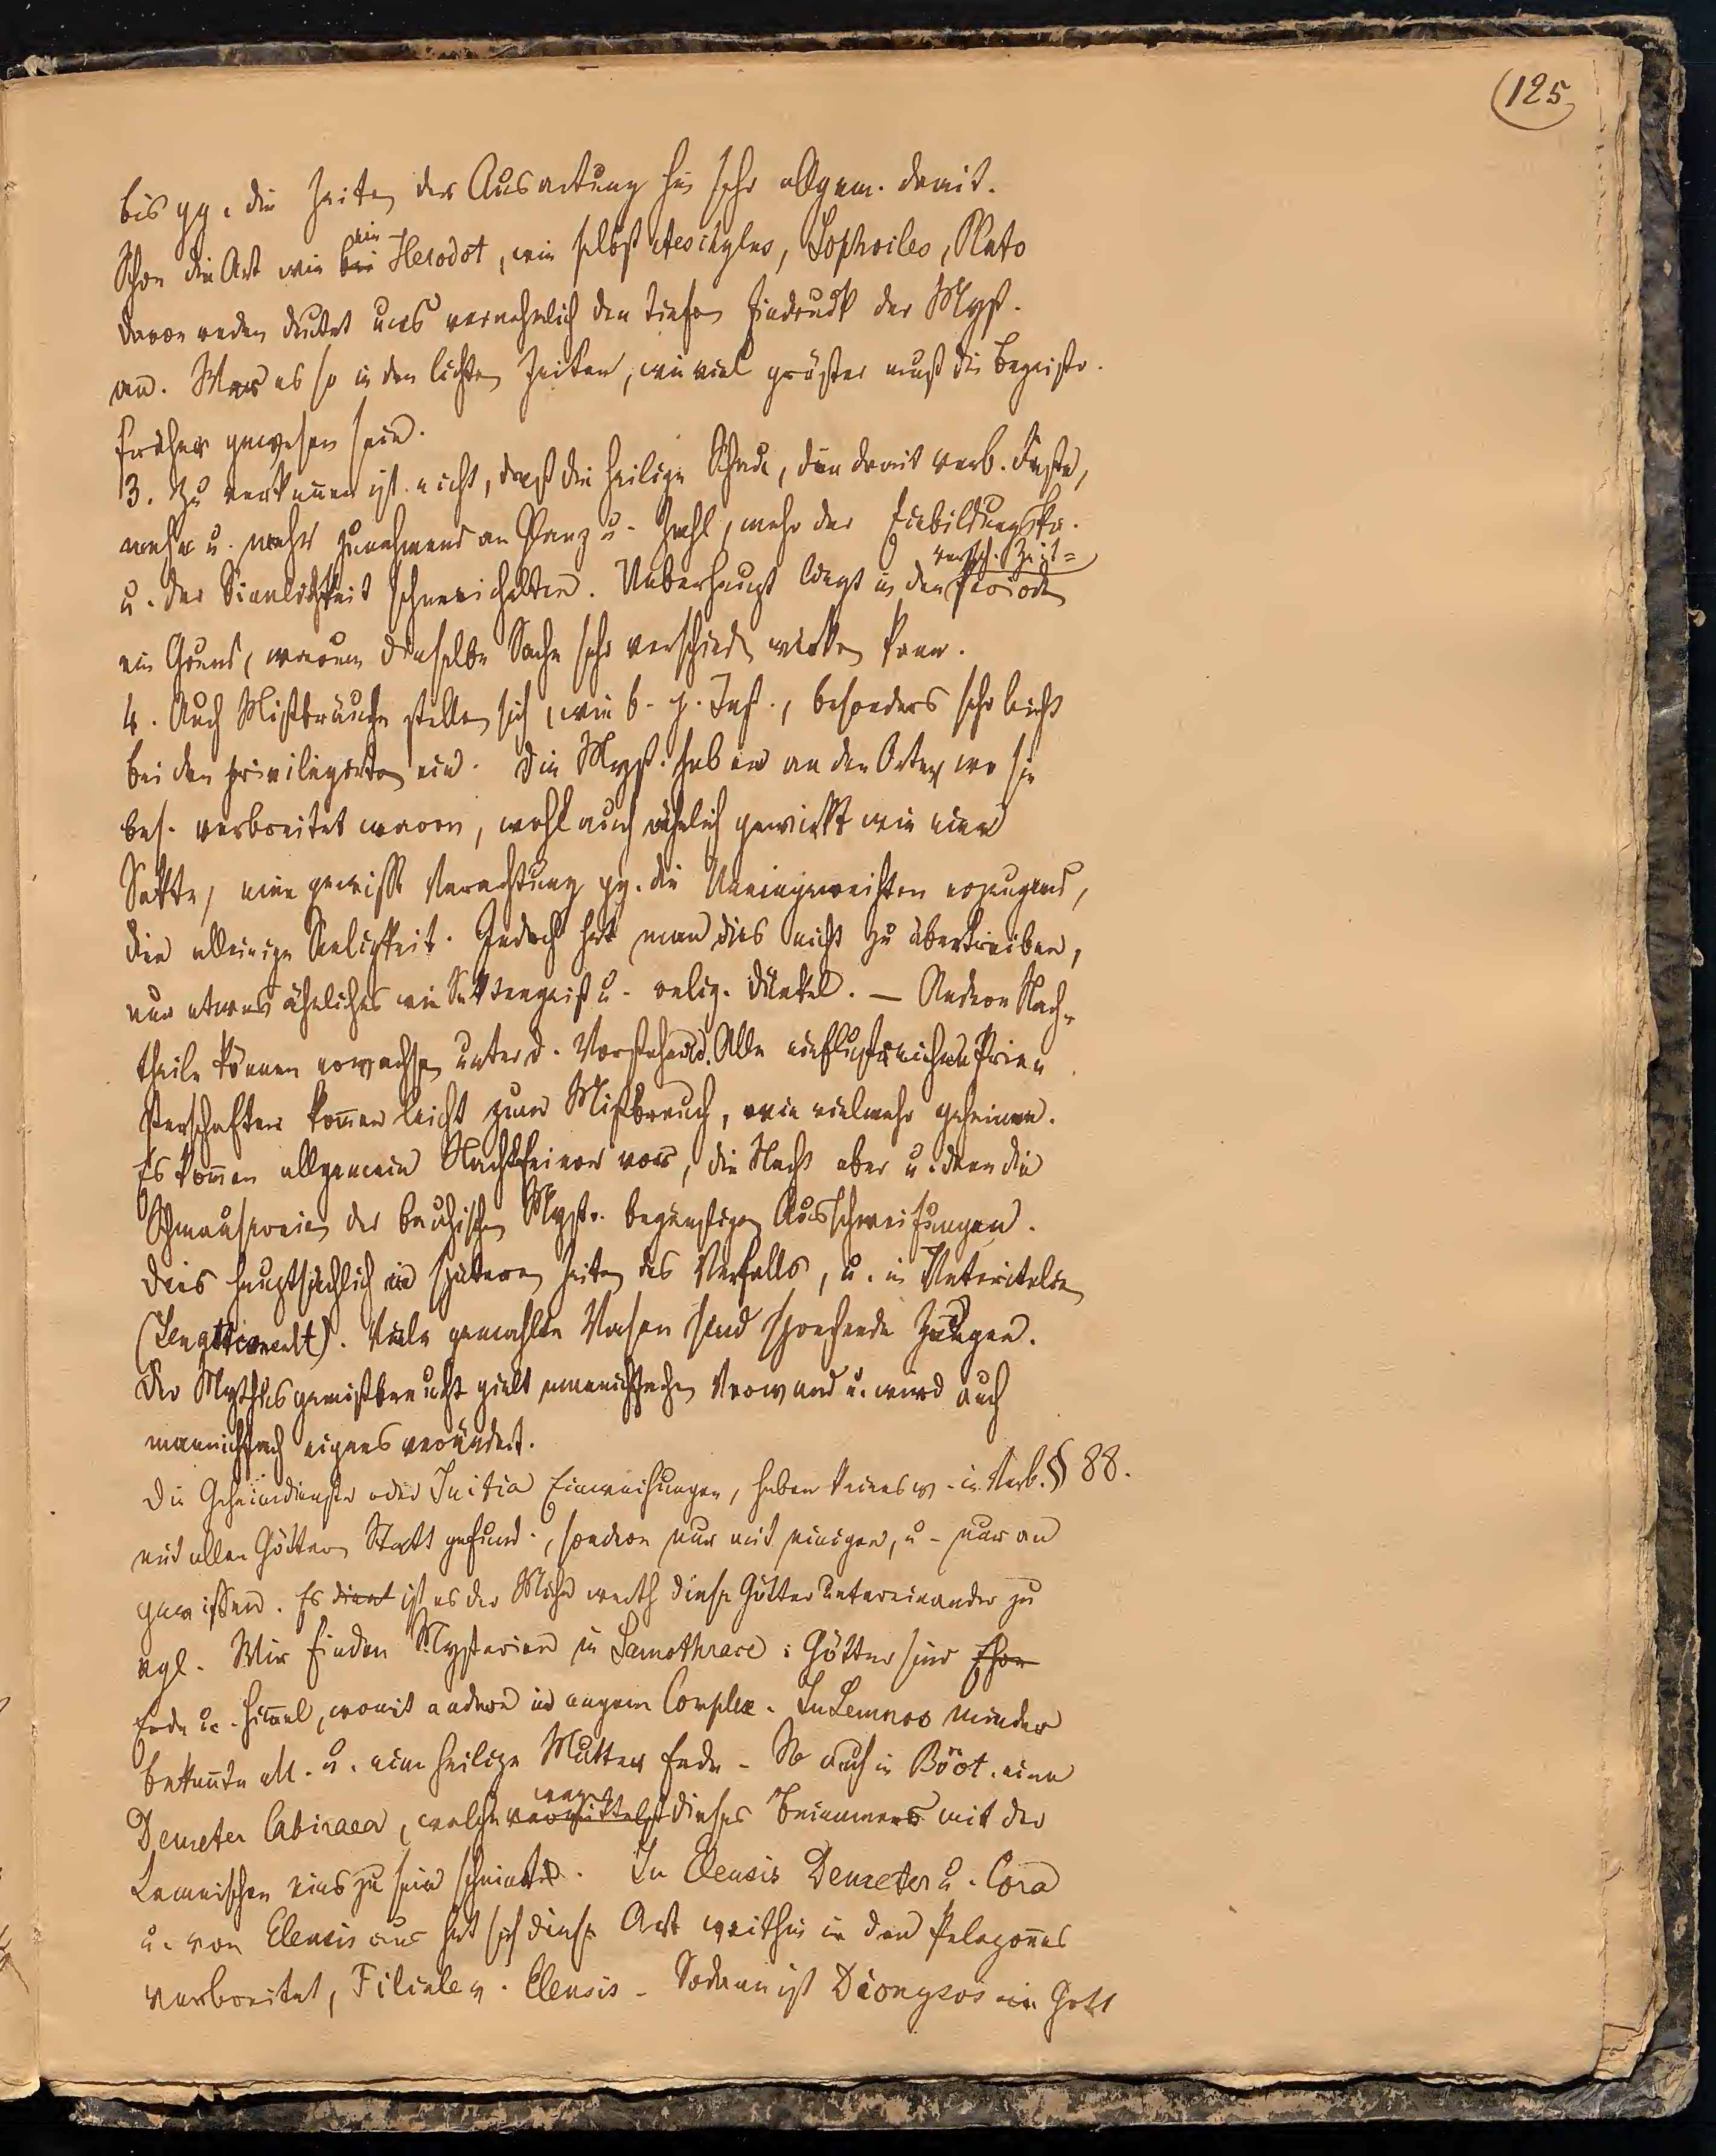 (125)
bis gg. die Zeiten der Ausartung hin sehr allgem. damit.
Schon die Art wie bei wie Herodot, wie selbst Aeschylus, Sophocles, Plato
davon reden deutet uns vernehmlich den tiefen Eindruck der Myst.
an. War es so in den lichten Zeiten, wie viel größer muß die Begeistr.
früher gewesen sein.
3. Zu verkennen ist nicht, daß die heilige Schau, die damit verb. Feste,
mehr u. mehr zunehmend an Glanz u. Zahl, mehr der Einbildungskr.
u. der Sinnlichkeit schmeichelten. Ueberhaupt liegt in den versch. Zeit=
Perioden
ein Grund, warum dieselbe Sache sehr verschied. wirken kann.
4. Auch Mißbräuche stellen sich, wie b. j. Inst., besonders sehr leicht
bei den privilegirten ein. Die Myst. haben an den Orten wo sie
bes. verbreitet waren, wohl auch ähnlich gewirkt wie eine
Sekte, eine gewisse Verachtung gg. die Uneingeweihten erzeugend,
die alleinige Seligkeit. Jedoch hat man dies nicht zu übertreiben,
nur etwas ähnliches wie Sektengeist u. relig. Dünkel. — Andere Nach-
theile können erwachsen unter d. Vorstehend. Alle einflußreichen Prie-
sterschaften kommen leicht zum Mißbrauch, wie vielmehr geheime.
Es kommen allgemein Nachtfeiern vor, die Nacht aber u. dann die
Schmausereien der bacchischen Myst. begünstigen Ausschweifungen.
Dies hauptsächlich in späteren Zeiten des Verfalls, u. in Unteritalien
. Viele gemahlte Vasen sind sprechende Zeugen.
Der Mythus gemißbraucht gielt mannichfachen Vorwand u. wird auch
mannichfach eigens verändert.
Die Geheimdienste oder Initia Einweihungen, haben keinesw. in Verb. § 88.
mit allen Göttern Statt gefund., sondern nur mit einigen, u. nur an
gewissen. Es dient ist es der Mühe werth diese Götter untereinander zu
vgl. Wir finden Mysterien in Samothrace: Götter sind
Erde u. Himmel, womit andere in engem Complex. In Lemnos minder
bekannte M. u. eine heilige Mutter Erde. So auch in Böot. eine
Demeter Cabiraea, welche vermittelst wegen dieses Beinamens mit der
Lemnischen eins zu sein scheint. In Eleusis Demeter u. Cora
u. von Eleusis aus hat sich diese Art weithin in den Peloponnes
verbreitet, Filiale v. Eleusis. Sodann ist Dionysos ein Gott